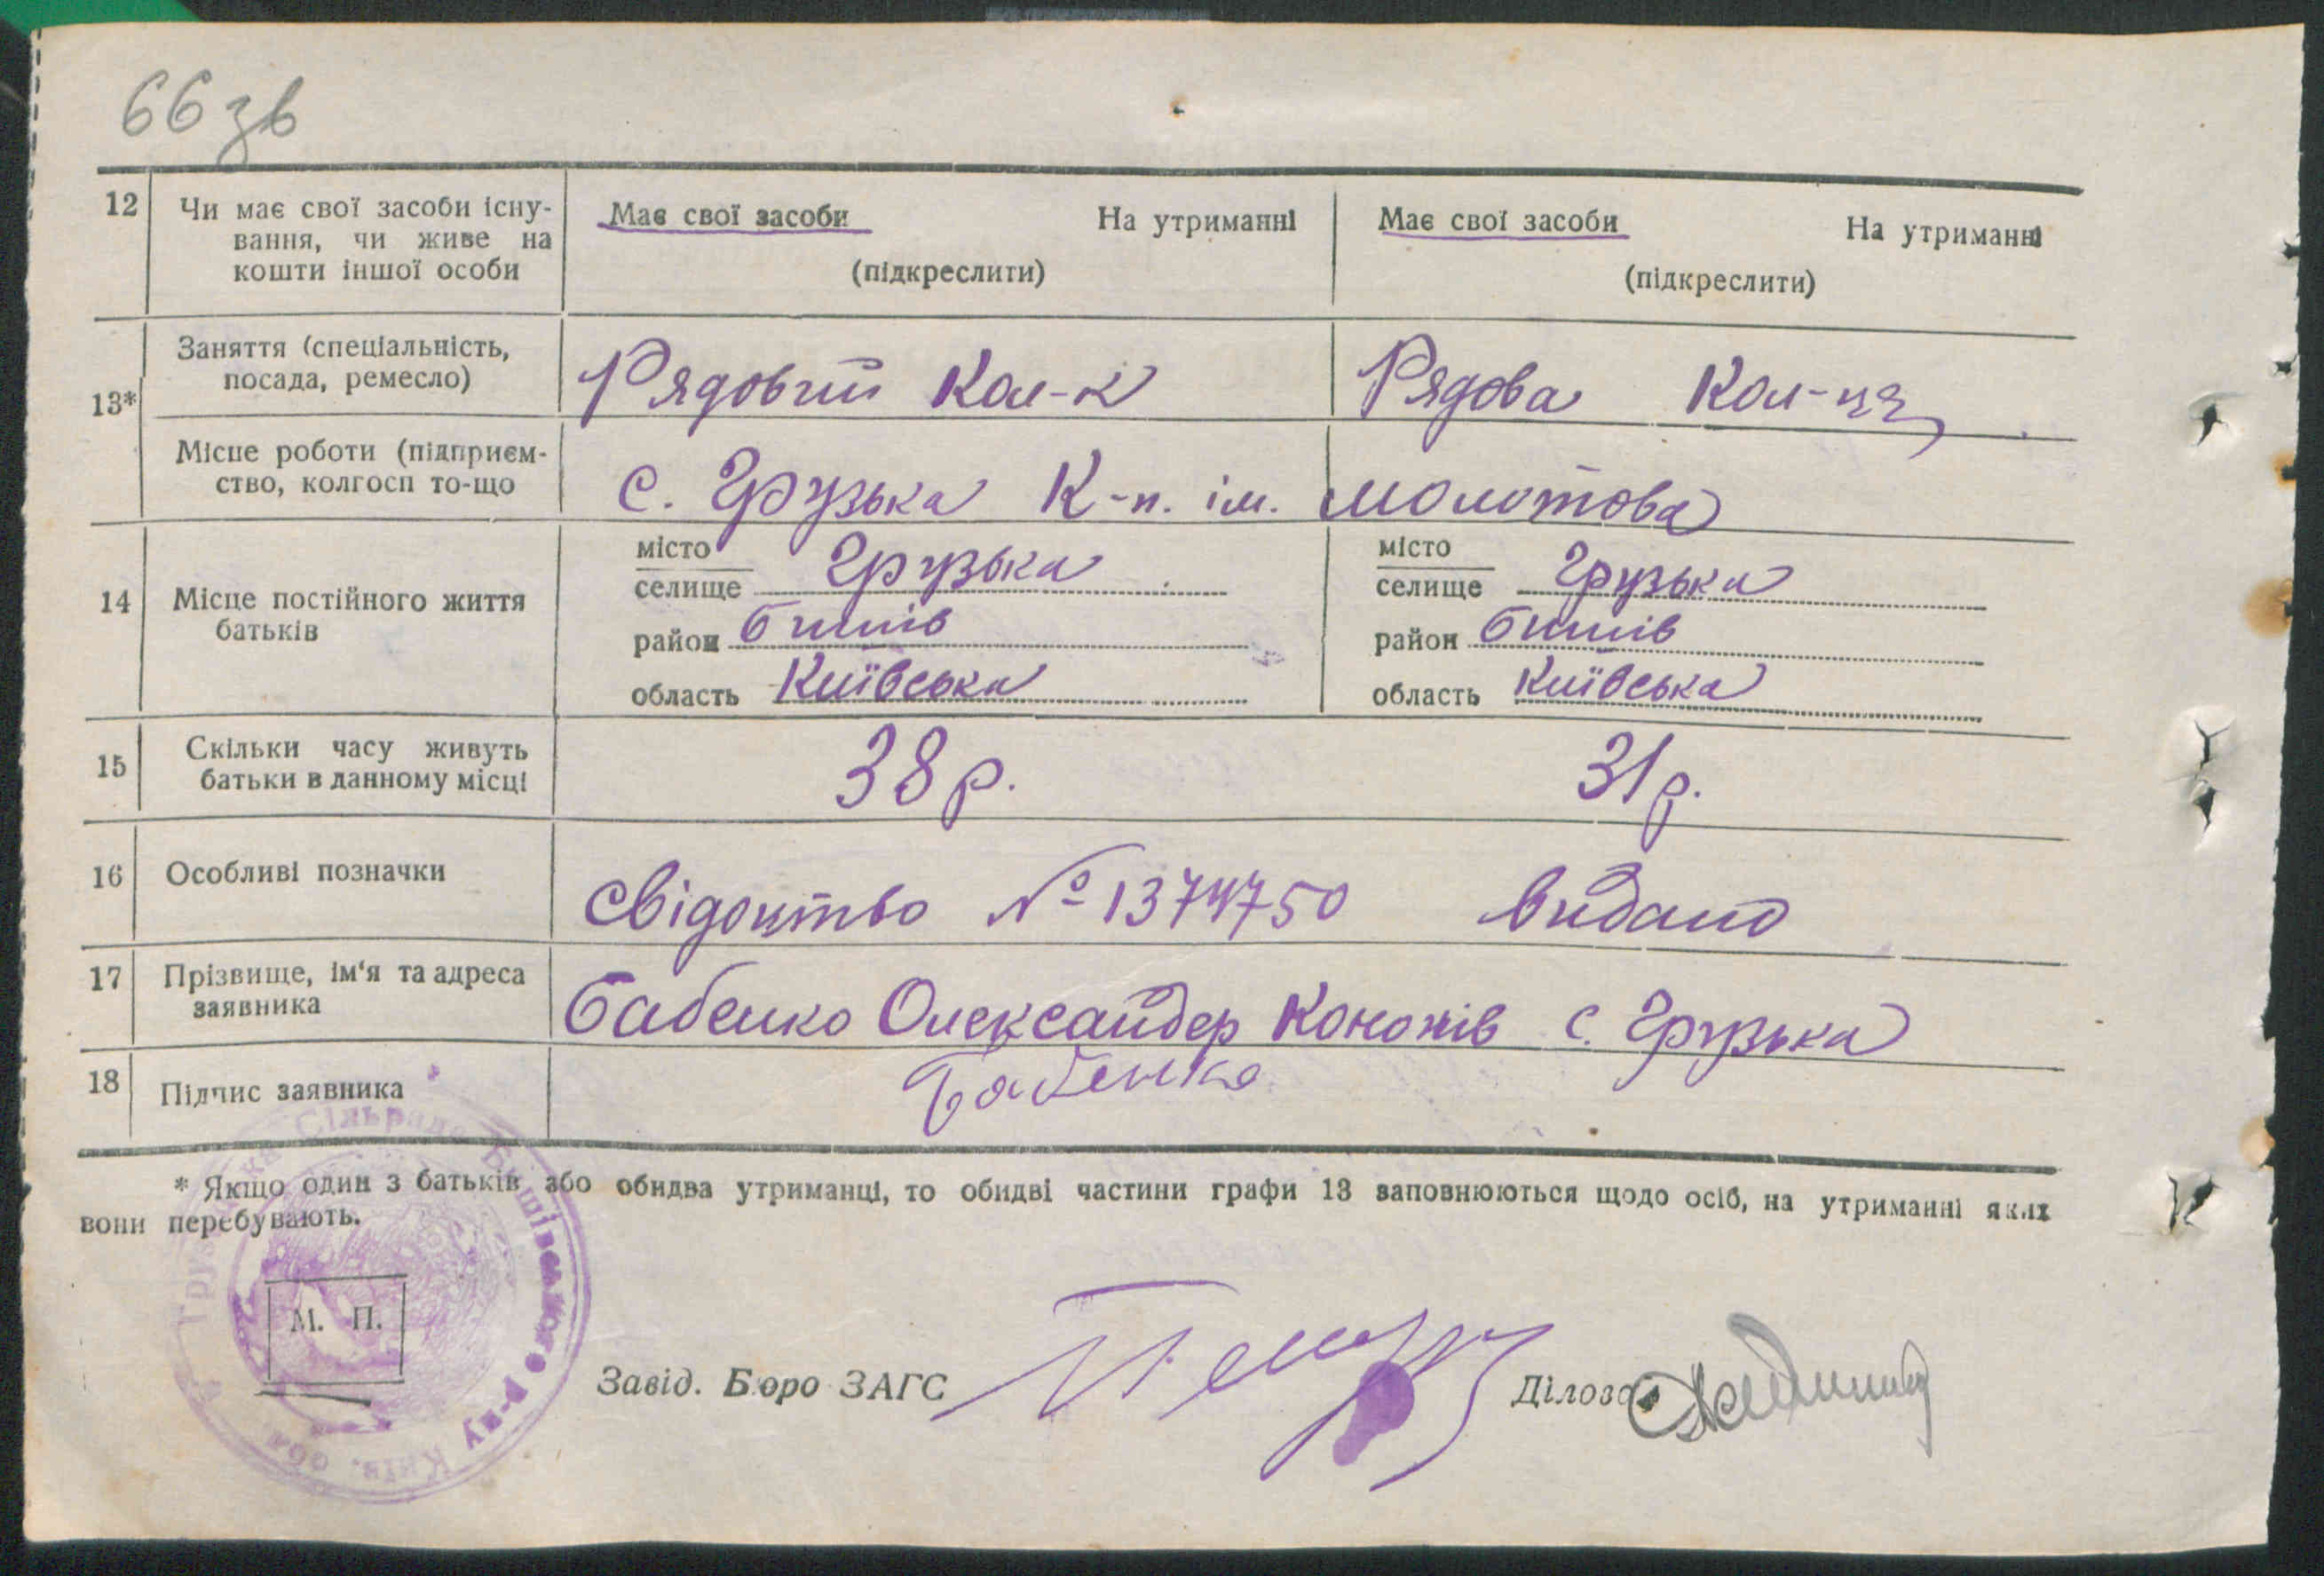 66 зв
12 Чи має свої засоби існу- Має свої засоби На утриманні Має свої засоби На утриманні
вання, чи живе на
кошти іншої особи (підкреслити) (підкреслити)
Заняття (спеціальність,
посада, ремесло) Рядовий Кол-к Рядова Кол-ця
13*
Місце роботи (підприєм-
ство, колгосп то-що с. Грузька К-п. ім. Молотова
місто місто
селище Грузька селище Грузька
14 Місце постійного життя
батьків
район Бишів район Бишів
область Київська область Київська
15 Скільки часу живуть
батьки в данному місці 38 р. 31 р.
16 Особливі позначки Свідоцтво № 1374750 видано
17 Прізвище, ім'я та адреса
заявника Бабенко Олександер Кононів с. Грузька
18 Підпис заявника Бабенко
* Якщо один з батьків або обидва утриманці, то обидві частини графи 13 заповнюються щодо осіб, на утриманні яких
вони перебувають.
Сільрада Бишівського р-ну Київ. обл
М. П.
Завід. Бюро ЗАГС Ділово